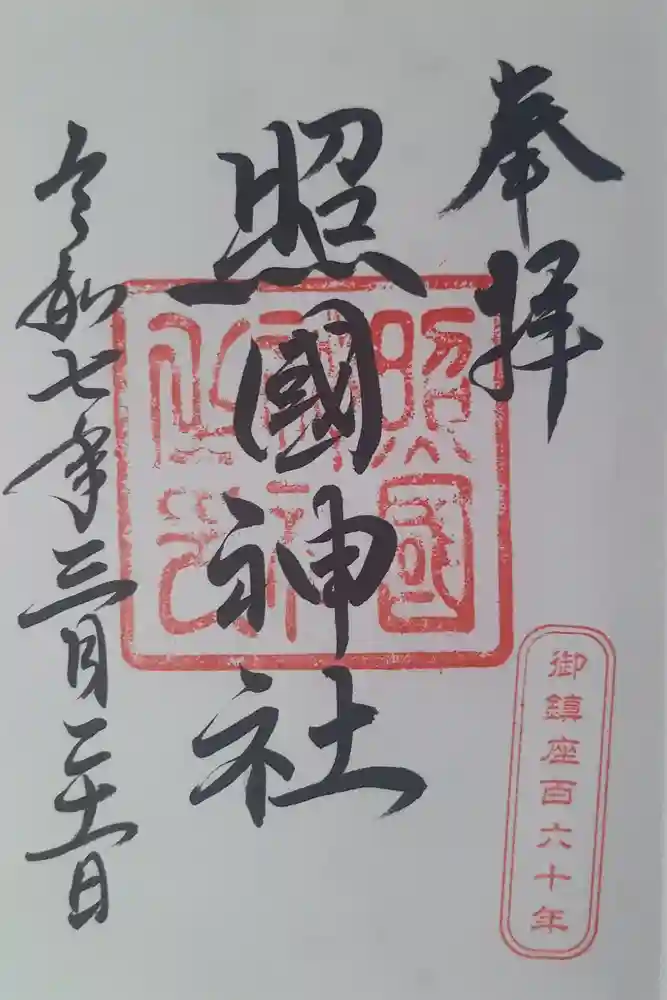 奉拝
御鎮座百六十年
照國神社
照國
令和七年三月二十一日